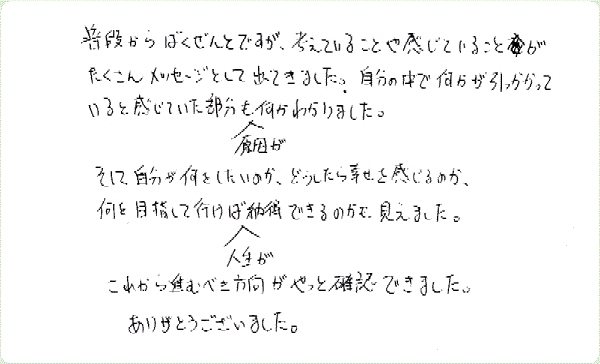 普段からばくぜんとですが、考えていることや感じていることが
たくさんメッセージとして出てきました。自分の中で何かが引っかかって
いると感じていた部分も何かわかりました。
原因が
そして自分が何をしたいのか、どうしたら幸せを感じるのか、
何を目指して行けば納得できるのかも見えました。
人生が
これから進むべき方向がやっと確認できました。
ありがとうございました。